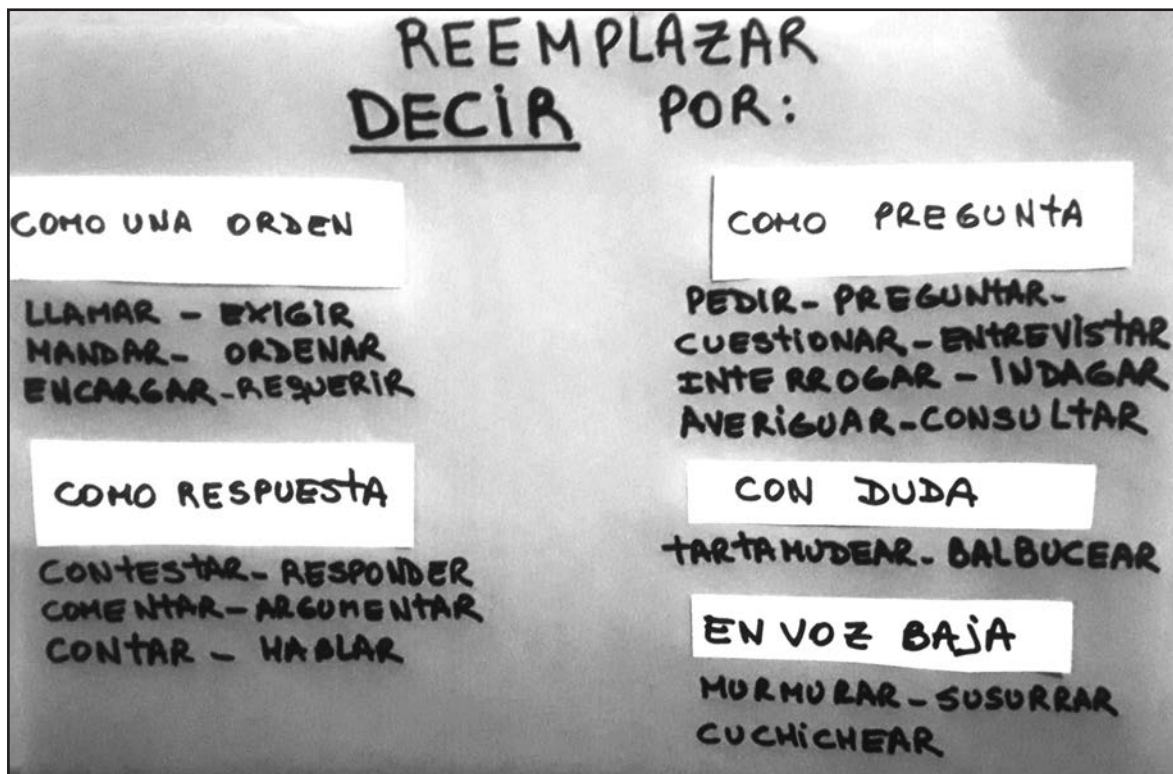 REEMPLAZAR
DECIR POR:
COMO UNA ORDEN
LLAMAR - EXIGIR
MANDAR- ORDENAR
ENCARGAR-REQUERIR
COMO RESPUESTA
CONTESTAR-RESPONDER
COMENTAR-ARGUMENTAR
CONTAR - HABLAR
COMO PREGUNTA
PEDIR- PREGUNTAR-
CUESTIONAR-ENTREVISTAR
INTERROGAR - INDAGAR
AVERIGUAR-CONSULTAR
CON DUDA
TARTAMUDEAR-BALBUCEAR
EN VOZ BAJA
MURMURAR-SUSURRAR
CUCHICHEAR